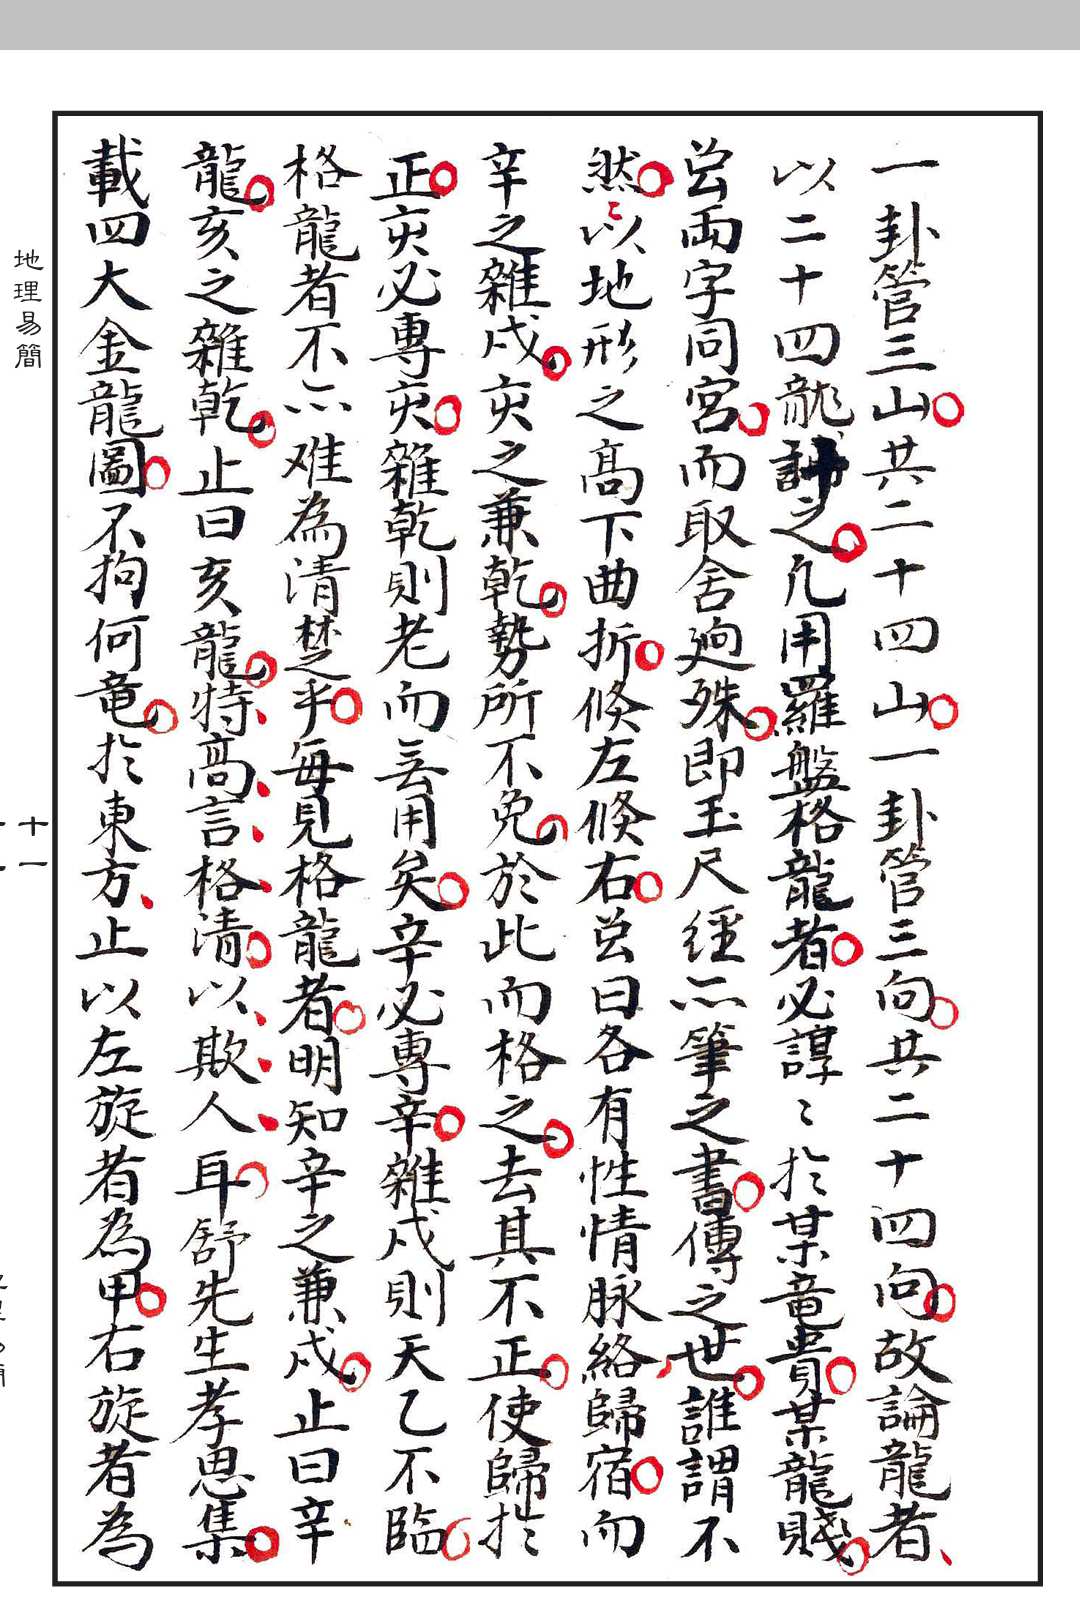 一卦管三山共二十四山一卦管三向共二十四向故論龍者
以二十四龍論之凢用羅盤格龍者必諄〻於某竜貴某龍賤
当両字同宮而取舍廻殊即玉尺経亦筆之書傳之世誰謂不
然〻以地形之髙下曲折倐左倐右当曰各有性情脉絡歸宿而
辛之雜戍亥之兼乾勢所不免於此而格之去其不正使歸於
正亥必專亥雜乾則老而羌用矣辛必專辛雜戍則天乙不臨
格龍者不亦难為清楚乎每見格龍者明知辛之兼戍止曰辛
龍亥之雜乾止曰亥龍特髙言格清以欺人耳舒先生孝思集
載四大金龍圖不拘何竜於東方止以左旋者為甲右旋者為
地理易簡
十一